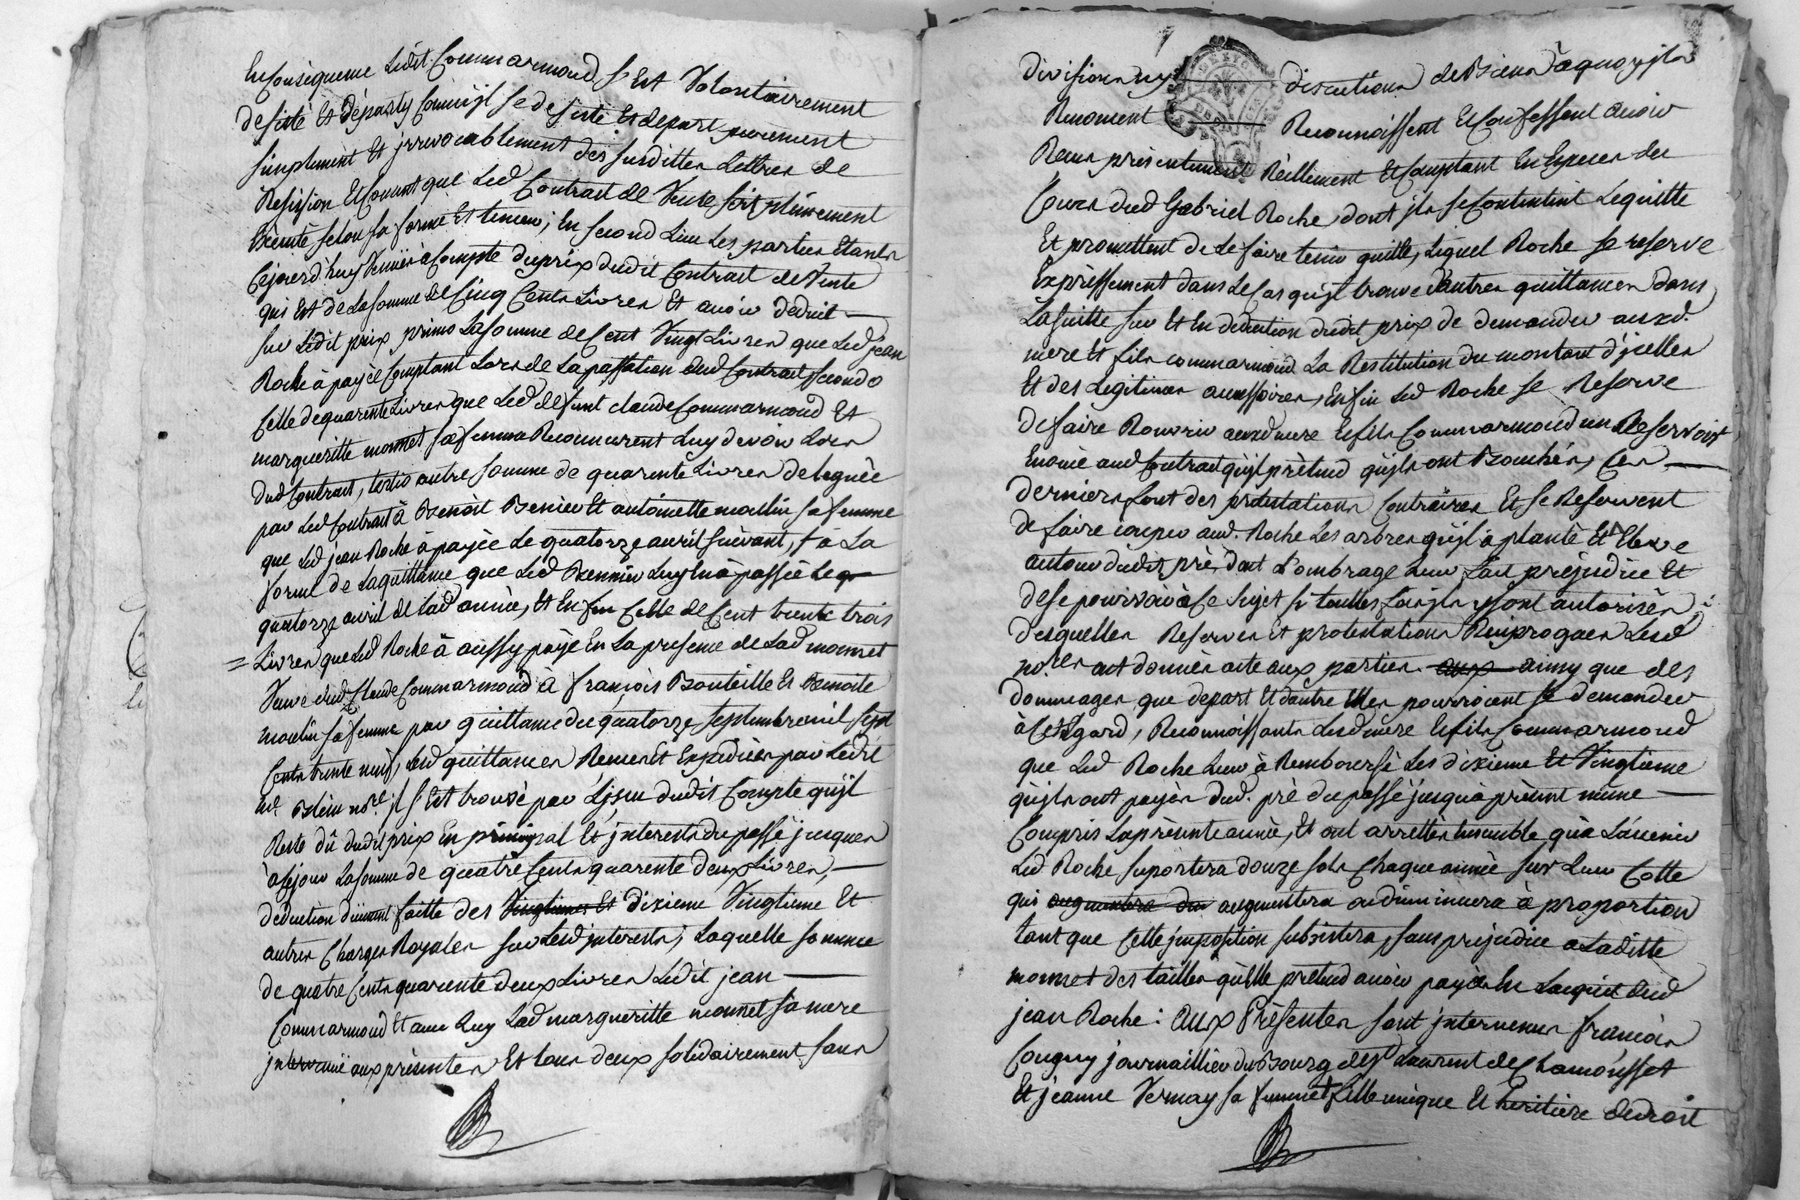 En Conséquence Ledit Commarmond s'Est Volontairement
desisté Et départy Comme jl se desiste Et depart purement
simplement Et jrrevocablement des susdittes Lettres de
Resision Et Consent que Led Contrat de Vente soit pleinement
Exécuté selon sa forme Et teneur; En second Lieu Les parties Etants
Cejourd'huy Venues à Compte du prix dudit Contrat de Vente
qui Est de La somme de Cinq Cents Livres Et avoir deduit
sur Ledit prix primo La somme de Cent Vingt Livres que Led jean
Roche à payée Comptant Lors de La passation dud Contrat, secondo
Celle de quarente Livres que Led deffunt claude Commarmond Et
margueritte monnet sa femme Reconnurent Luy devoir Lors
dud Contrat, tertio autre somme de quarente Livres deleguée
par Led Contrat à Benoit Benier Et antoinette moulin sa femme
que Led jean Roche à payée Le quatorze avril suivant, à La
forme de La quittance que Led Bennier Luy En à passée Le
quatorze avril de Lad année, Et Enfin Celle de Cent trente trois
Livres que Led Roche à aussy payé En La presence de Lad monnet
Veuve dud Claude Commarmond à françois Bouteille Et Benoite
moulin sa femme par quittance du quatorze septembre mil sept
Cents trente neuf, Led quittances Receues Et Expediées par Ledit
me. Blein nore. jl s'Est trouvé par L'jssue dudit Compte qu'jl
Reste dû dudit prix En principal Et jnterests du passé jusques
à Cejour La somme de quatre Cents quarente deux Livres,
deduction duement faitte des Vingtiemes Et dixieme Vingtieme Et
autres Charges Royales sur Lesd jnterests; Laquelle somme
de quatre Cents quarente deux Livres Ledit jean
Commarmond Et avec Luy Lad margueritte monnet sa mere
jntervenüe aux présentes Et tous deux solidairement sans
division ny discution de Biens à quoy jls
Renoncent Reconnoissent Et Confessent avoir
Receu présentement Réellement Et Comptant En Especes du
Cours dud Gabriel Roche, dont jls se Contentent Le quitte
Et promettent de Le faire tenir quitte, Lequel Roche se reserve
Expréssement dans Le Cas qu'jl trouve d'autres quittances dans
La suitte sur Et En deduction dudit prix de demander auxd.
mere Et fils commarmond La Restitution du montant d'jcelles
Et des Legitimes accessoires, Enfin Led Roche se Reserve
de faire Rouvrir auxd mere Et fils Commarmond un Reservoir
Enoncé aud Contrat qu'jl prétend qu'jls ont Bouché, Ces
derniers font des protestations Contraires Et se Reservent
de faire couper aud. Roche Les arbres qu'jl à planté Et Elevé
autour dudit pré, dont L'ombrage Leur fait prejudice Et
de se pourvoir à Ce sujet si touttes fois jls y sont autorisés;
desquelles Reserves Et protestations Reciproques Lesd
nores. ont donnés acte aux parties aux ainsy que des
dommages que de part Et d'autre Elles pourroient se demander
à Cet Egard, Reconnoissants Lesd mere Et fils Commarmond
que Led Roche Leur à Remboursé Les dixieme Et Vingtieme
qu'jls ont payés dud. pré du passé jusqu'à présent même
Compris La présente année, Et ont arrettés Ensemble qu'à L'avenir
Led Roche suportera douze sols Chaque année sur Leur Cotte
qui augmentera ou augmentera ou diminuera à proportion
tant que Cette jmposition subsistera, sans prejudice à Laditte
monnet des tailles qu'Elle pretend avoir payées En L'acquit dud
jean Roche: aux Présentes sont jntervenus françois
Cougny journaillier du Bourg de st Laurent de Chamousset
Et jeanne Vernay sa femme Et fille unique Et heritiere de droit